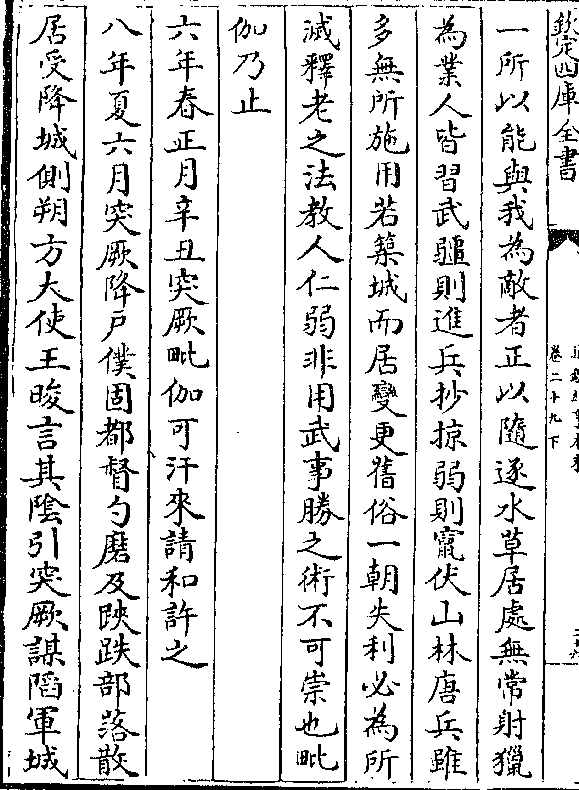 欽定四庫全書
卷二十九下
一所以能與我為敵者正以隨逐水草居處無常射獵
為業人皆習武彊則進兵抄掠弱則竄伏山林唐兵雖
多無所施用若築城而居變更舊俗一朝失利必為所
滅釋老之法教人仁弱非用武事勝之術不可崇也毗
伽乃止
六年春正月辛丑突厥毗伽可汗來請和許之
八年夏六月突厥降戶僕固都督勺磨及𨁂跌部落散
居受降城側朔方大使王晙言其陰引突厥謀䧟軍城